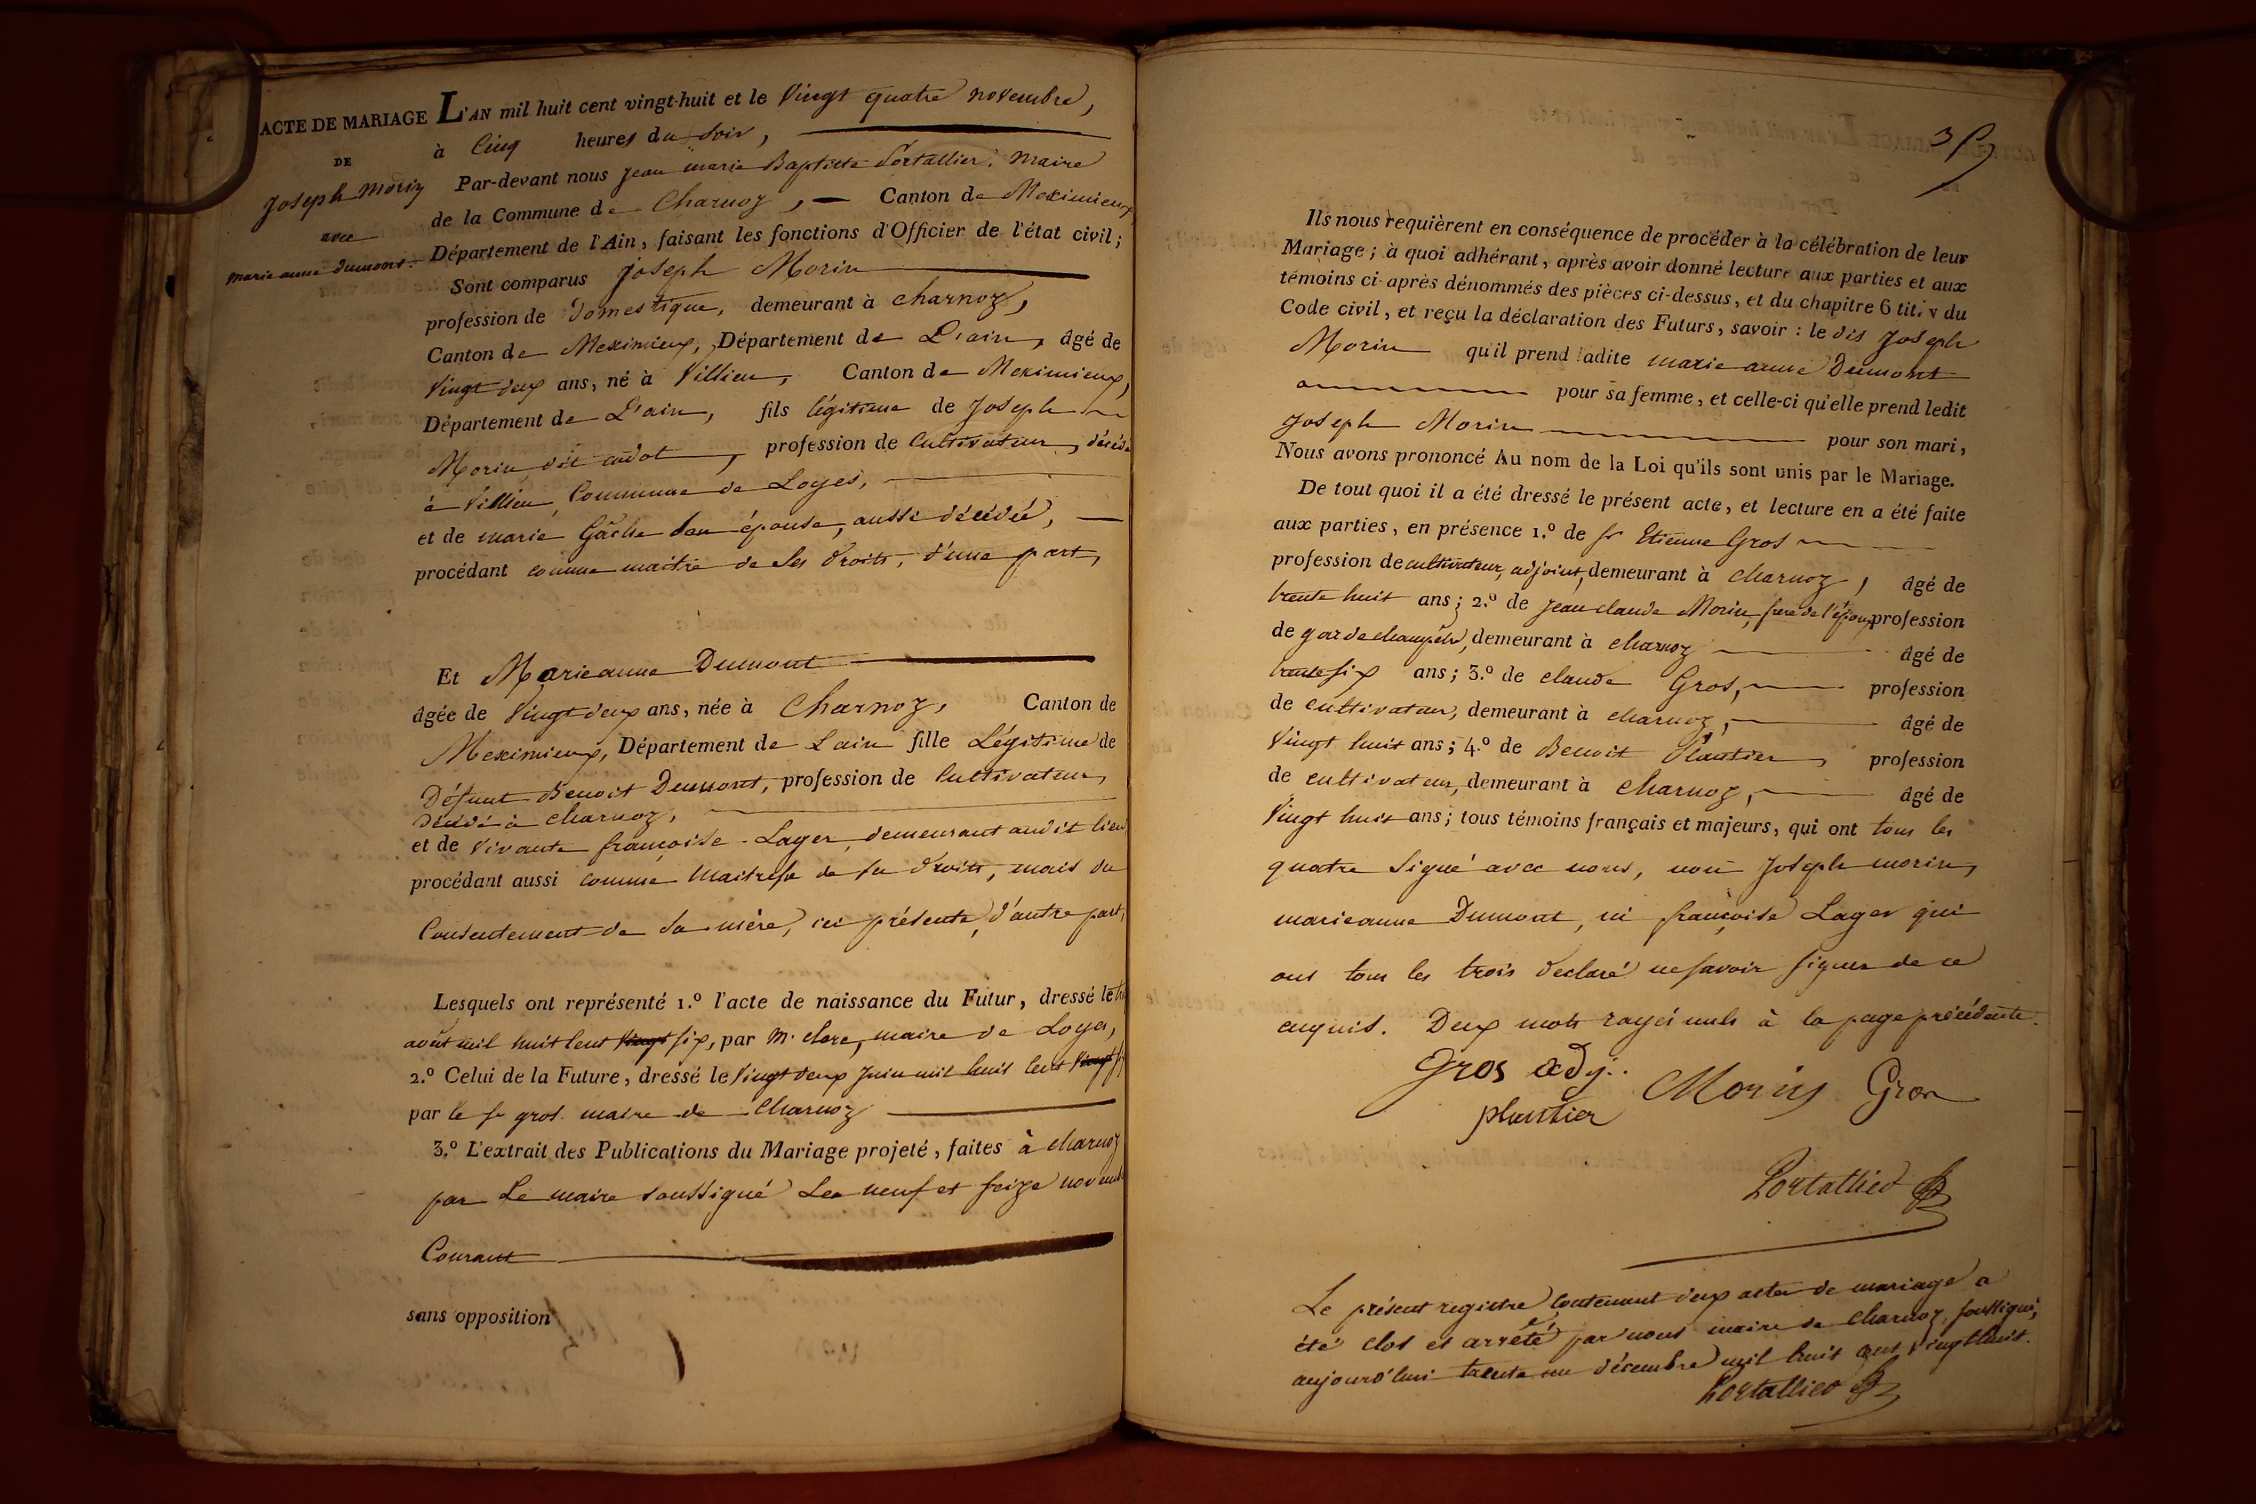 ACTE DE MARIAGE
DE
Joseph Morin
avec
marie anne Dumont.
L'AN mil huit cent vingt-huit et le Vingt quatre novembre,
à Cinq heures du soir,
Par-devant nous jean marie Baptiste Portallier, Maire
de la Commune de Charnoz, Canton de Meximieux
Département de l'Ain, faisant les fonctions d'Officier de l'état civil;
Sont comparus joseph Morin
profession de domestique, demeurant à charnoz,
Canton de Meximieux, Département de L'ain, âgé de
Vingt deux ans, né à Villieu, Canton de Meximieux,
Département de L'ain, fils légitime de Joseph
Morin dit profession de Cultivateur, décédé
à Villieu, Commune de Loyes,
et de marie Gâche son épouse, aussi décédée,
procédant comme maitre de ses droits, d'une part,
Et Marieanne Dumont
âgée de Vingt deux ans, née à Charnoz, Canton de
Meximieux, Département de L'ain fille Légitime de
Défunt Benoit Dumont, profession de Cultivateur,
Décédé à charnoz,
et de vivante françoise Lager, demeurant audit lieu
procédant aussi comme Maitresse de ses droits, mais du
Consentement de sa mère, ici présente, d'autre part,
Lesquels ont représenté 1.º l'acte de naissance du Futur, dressé le
août mil huit cent vingt six, par M. clerc, maire de Loyes,
2.º Celui de la Future, dressé le Vingt deux Juin mil huit cent Vingt
par le sr gros. maire de Charnoz
3.º L'extrait des Publications du Mariage projeté, faites à charnoz
par Le maire soussigné Les neuf et seize novembre
Courant
sans opposition
39
Ils nous requièrent en conséquence de procéder à la célébration de leur
Mariage; à quoi adhérant, après avoir donné lecture aux parties et aux
témoins ci-après dénommés des pièces ci-dessus, et du chapitre 6 tit. v du
Code civil, et reçu la déclaration des Futurs, savoir: le dit Joseph
Morin qu'il prend ladite marie anne Dumont
pour sa femme, et celle-ci qu'elle prend ledit
Joseph Morin pour son mari,
Nous avons prononcé Au nom de la Loi qu'ils sont unis par le Mariage.
De tout quoi il a été dressé le présent acte, et lecture en a été faite
aux parties, en présence 1.º de sr Etienne Gros
profession de cultivateur, adjoint, demeurant à charnoz, âgé de
trente huit ans; 2.º de jean claude Morin, frere de l'époux profession
de garde champêtre, demeurant à charnoz âgé de
trente six ans; 3.º de claude Gros, profession
de cultivateur, demeurant à charnoz, âgé de
Vingt huit ans; 4.º de Benoit Plantier, profession
de cultivateur, demeurant à charnoz, âgé de
Vingt huit ans; tous témoins français et majeurs, qui ont tous les
quatre signé avec nous, non Joseph morin,
marieanne Dumont, ni françoise Lager qui
ont tous les trois déclaré ne savoir signer de ce
enquis. Deux mots rayés nuls à la page précédente.
Gros adj. Morin Gros
plantier
Portallier
Le présent registre contenant deux actes de mariage a
été clos et arrêté par nous maire de Charnoz, soussigné,
aujourd'hui trente un décembre mil huit cent vingthuit.
Portallier